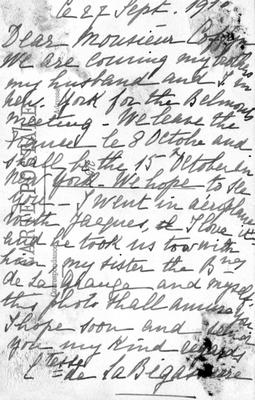 le 27 Sept. 1910
Dear Monsieur
We are coming my brother
my husband and I in
New. York for the Belmont
meeting - We leave the
France - le 8 Octobre and
shall be the 15 October in
New York - We hope to see
you - I went in aeroplane
with Jacques, I love it
and he took us tow with
him my sister the B
de La Grange and myself
this photo shall amuse you
I hope soon and
you my kind regards
de La Begassière